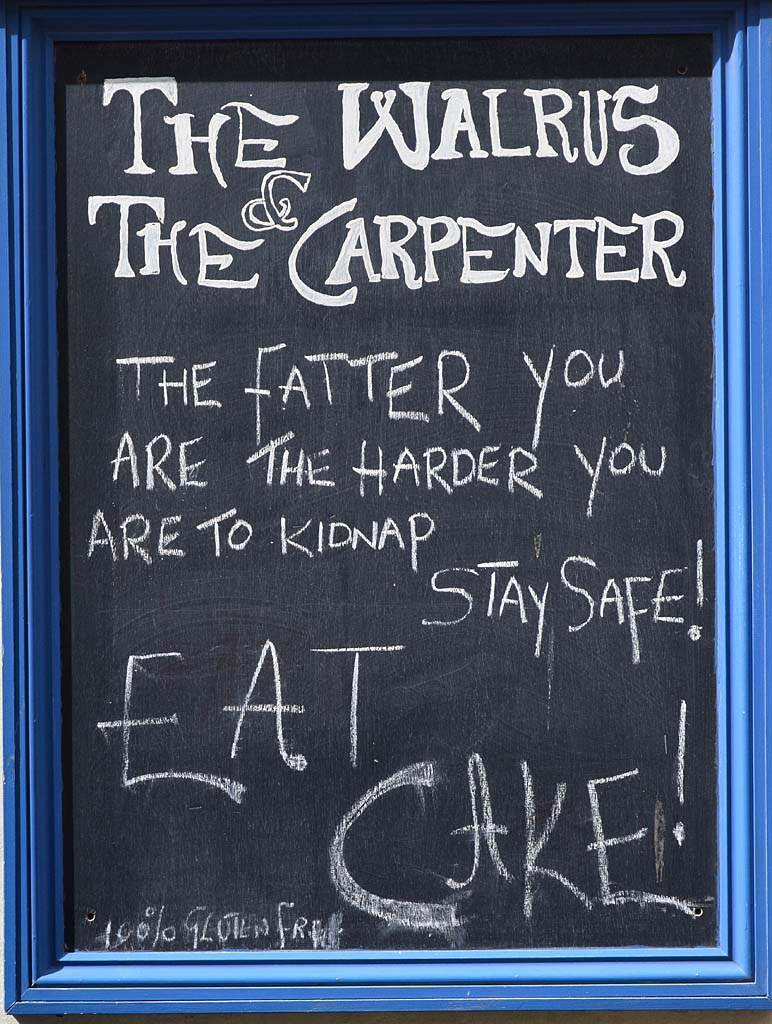 THE WALRUS
&
THE CARPENTER
THE FATTER YOU
ARE THE HARDER YOU
ARE TO KIDNAP
STAY SAFE!
EAT
CAKE!
100% GLUTEN FREE